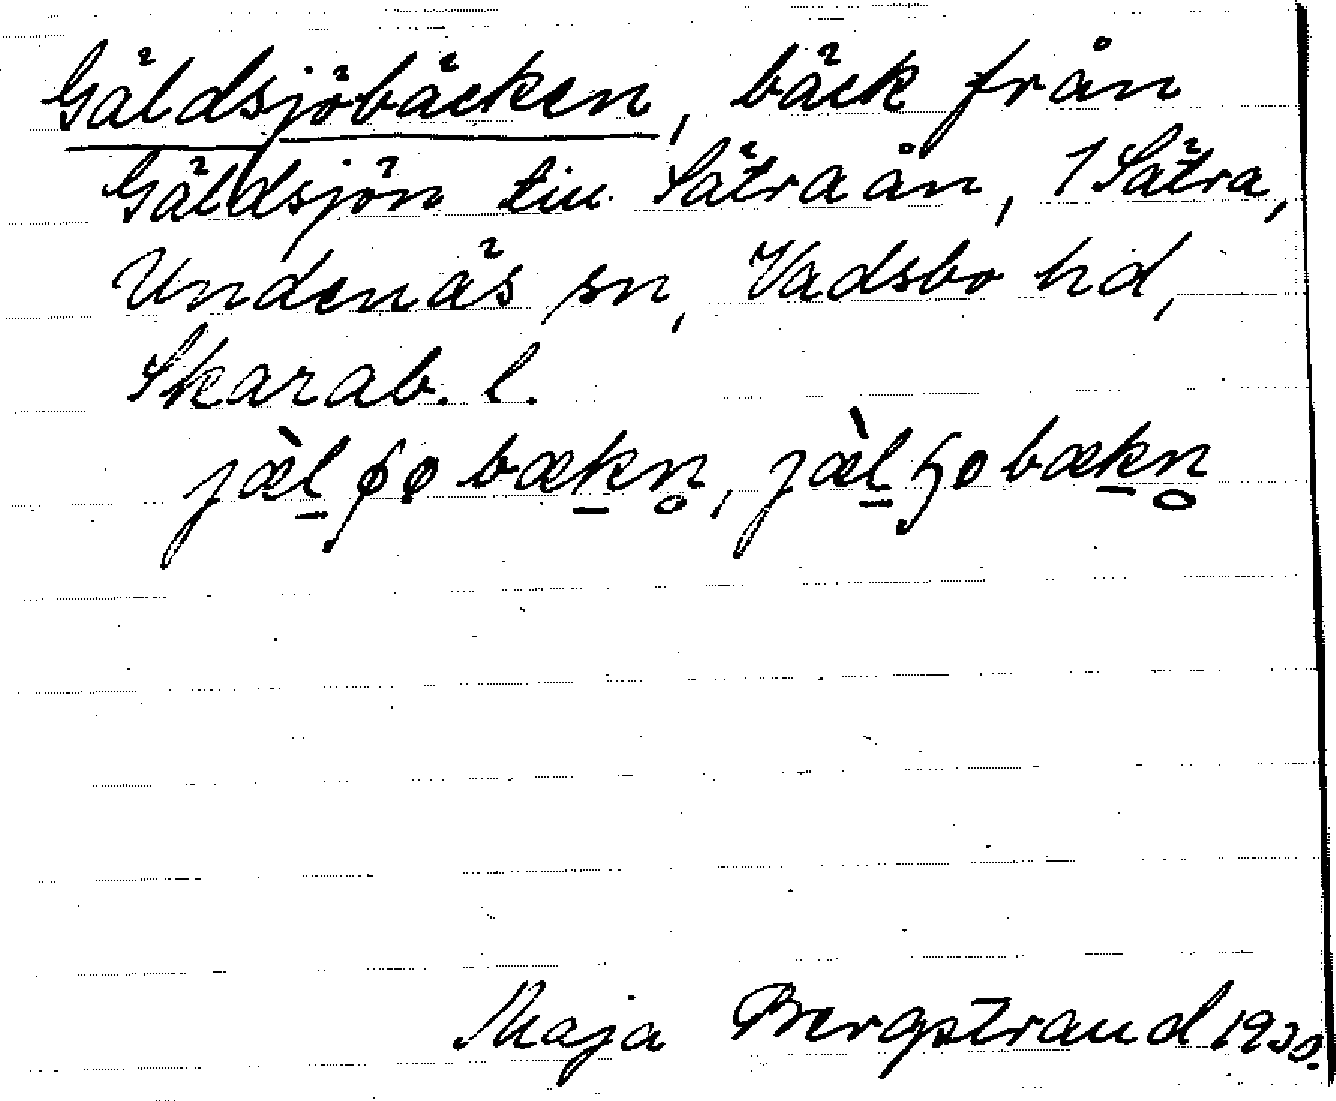 Gäldsjöbäcken, bäck från
Gäldsjön till Sätraån, 1 Sätra,
Undenäs sn, Vadsbo hd,
Skarab. l.
jæ̀l̲ʃøbæk̲n̥,
Maja Bergstrand 1930.